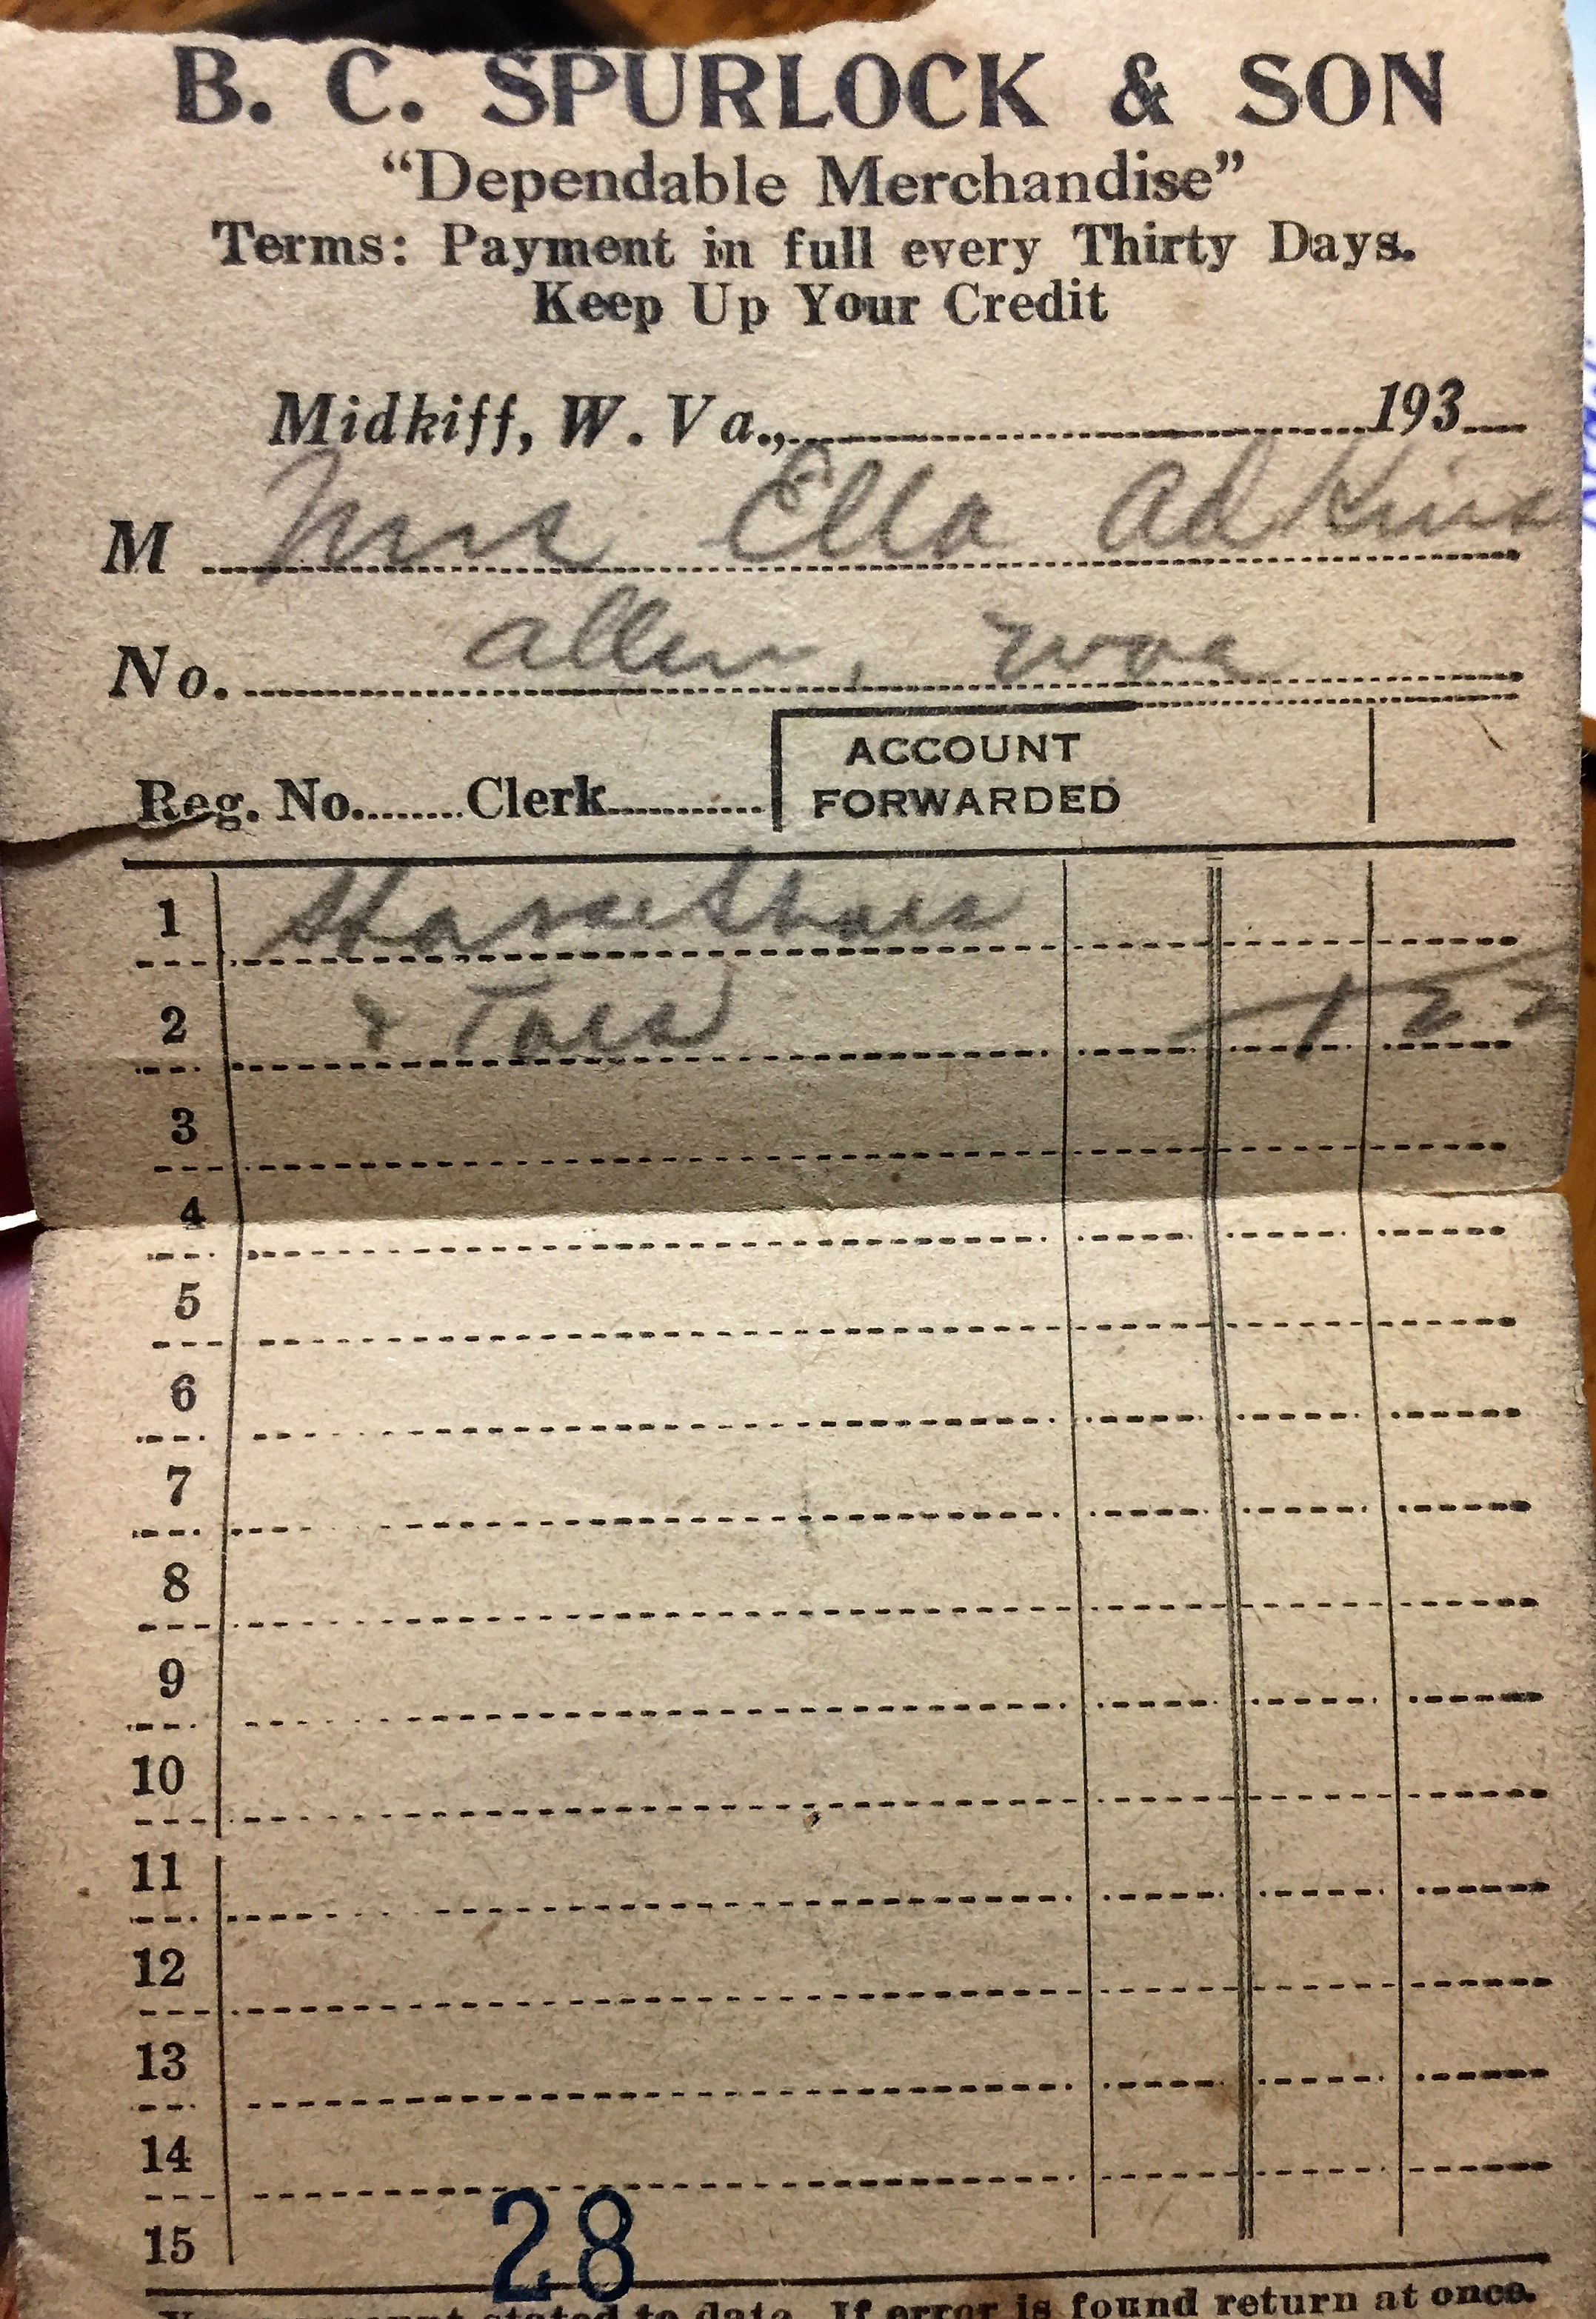 B. C. SPURLOCK & SON
“Dependable Merchandise”
Terms: Payment in full every Thirty Days.
Keep Up Your Credit
Midkiff, W. Va., 193
M Mrs Ella Adkins
No. allen,
Reg. No. Clerk
ACCOUNT
FORWARDED
1 Horse Shoes
2 & Toes 1 22
3
4
5
6
7
8
9
10
11
12
13
14
15
28
stated to date. If error is found return at once.